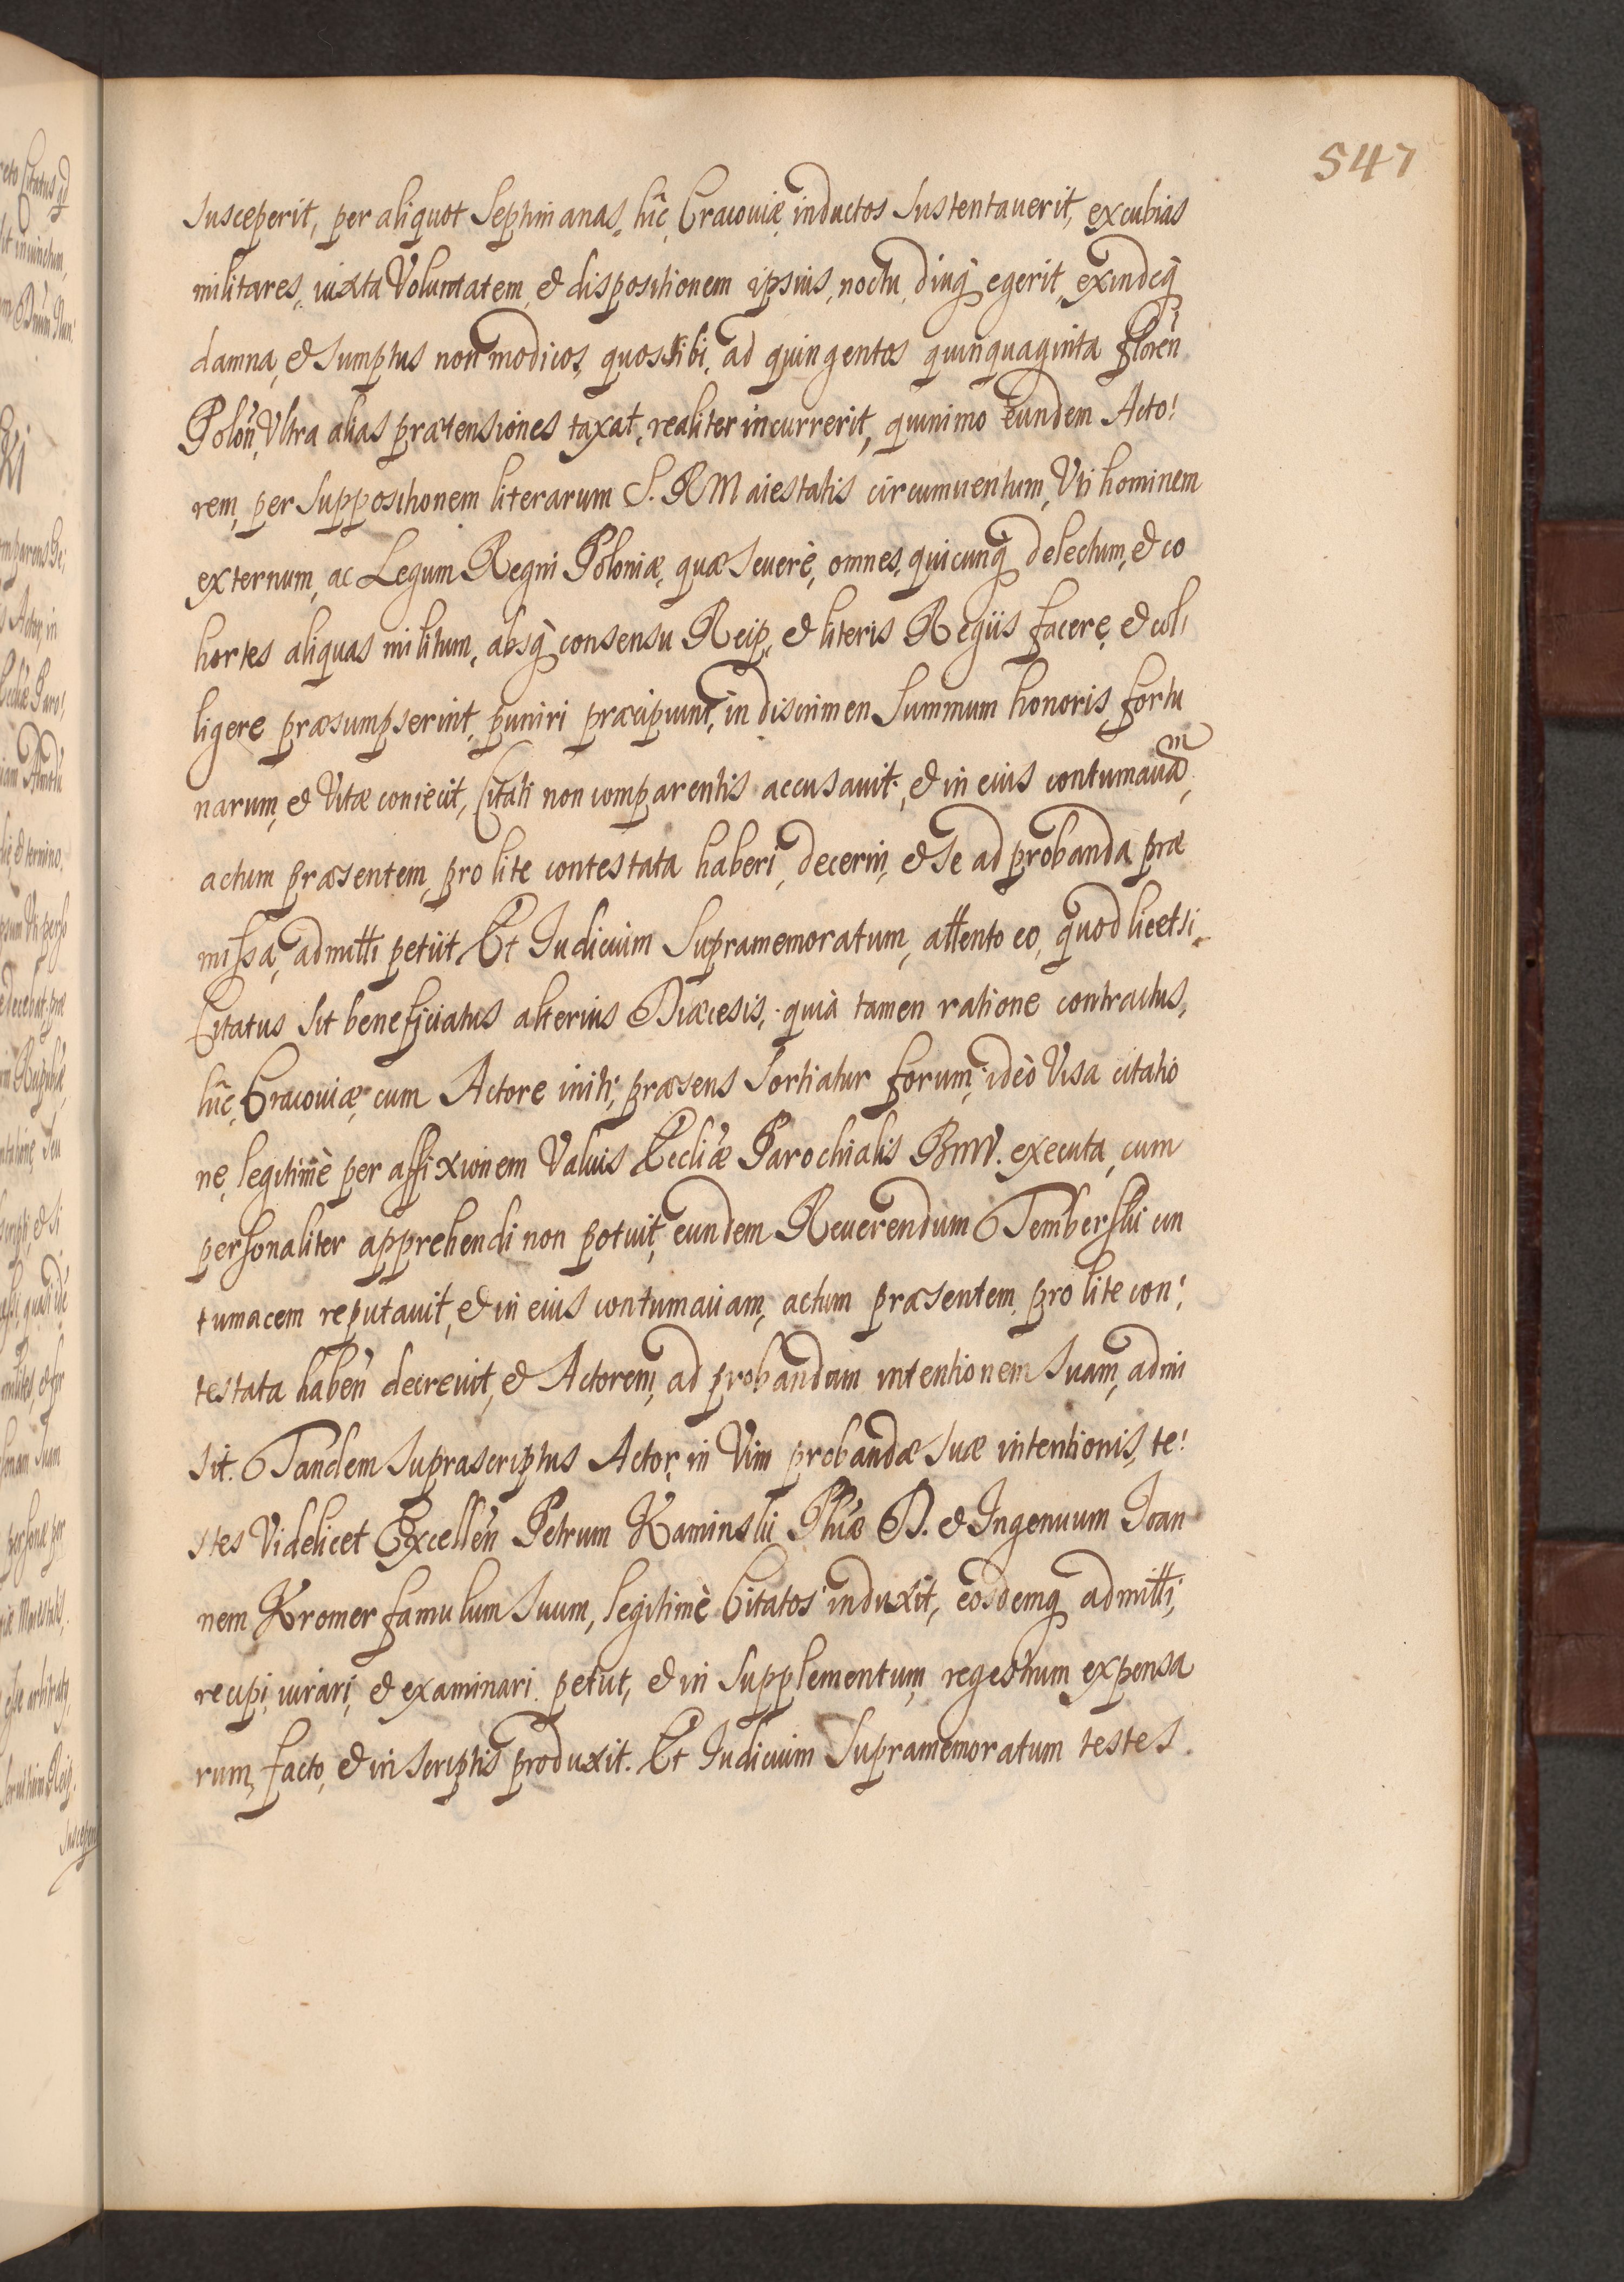 547
susceperit, per aliquot septimanas, hic, Cracouiæ, inductos sustentauerit, excubias
militares, iuxta Voluntatem, & dispositionem ipsius, noctu, diuq́ egerit, exindeq́
damna, & sumptus non modicos, quos sibi, ad quingentos quinquaginta floren̄
Polon̄, Vltra alias prætensiones taxat, realiter incurrerit, quinimo eundem Acto:
rem, per suppositionem literarum S. R M aiestatis circumuentum, Vti hominem
externum, ac Legum Regni Poloniæ, quæ seuerè, omnes, quicunq́ delectum, & co
hortes aliquas militum, absq́ consensu Reip, & literis Regiis facere, & col:
ligere præsumpserint, puniri præcipiunt, in discrimen summum honoris, fortu
narum, & Vitæ coniecit, Citati non comparentis accusauit, & in eius contumaciam,
actum præsentem, pro lite contestata haberi, decerni, & se ad probanda præ
missa, admitti petiit. Et Iudicium supramemoratum, attento eo, quod licet si
Citatus sit beneficiatus alterius Diæcesis, quià tamen ratione contractus,
hic, Cracouiæ, cum Actore initi, præsens sortiatur forum, ideò Visa citatio
ne, legitimè per affixionem Valuis Eccliæ Parochialis BMV. executa, cum
personaliter apprehendi non potuit, eundem Reuerendum Temberski con
tumacem reputauit, & in eius contumaciam, actum præsentem, pro lite con:
testata haberi decreuit, & Actorem, ad probandam intentionem suam, admi
sit. Tandem suprascriptus Actor, in Vim probandæ suæ intentionis, te:
stes Videlicet Excellen̄ Petrum Kaminski Phiæ D. & Ingenuum Ioan
nem Kromer famulum suum, legitimè Citatos induxit, eosdemq́ admitti,
recipi, iurari, & examinari petiit, & in supplementum, regestrum expensa
rum, facto, & in scriptis produxit. Et Iudicium supramemoratum testes